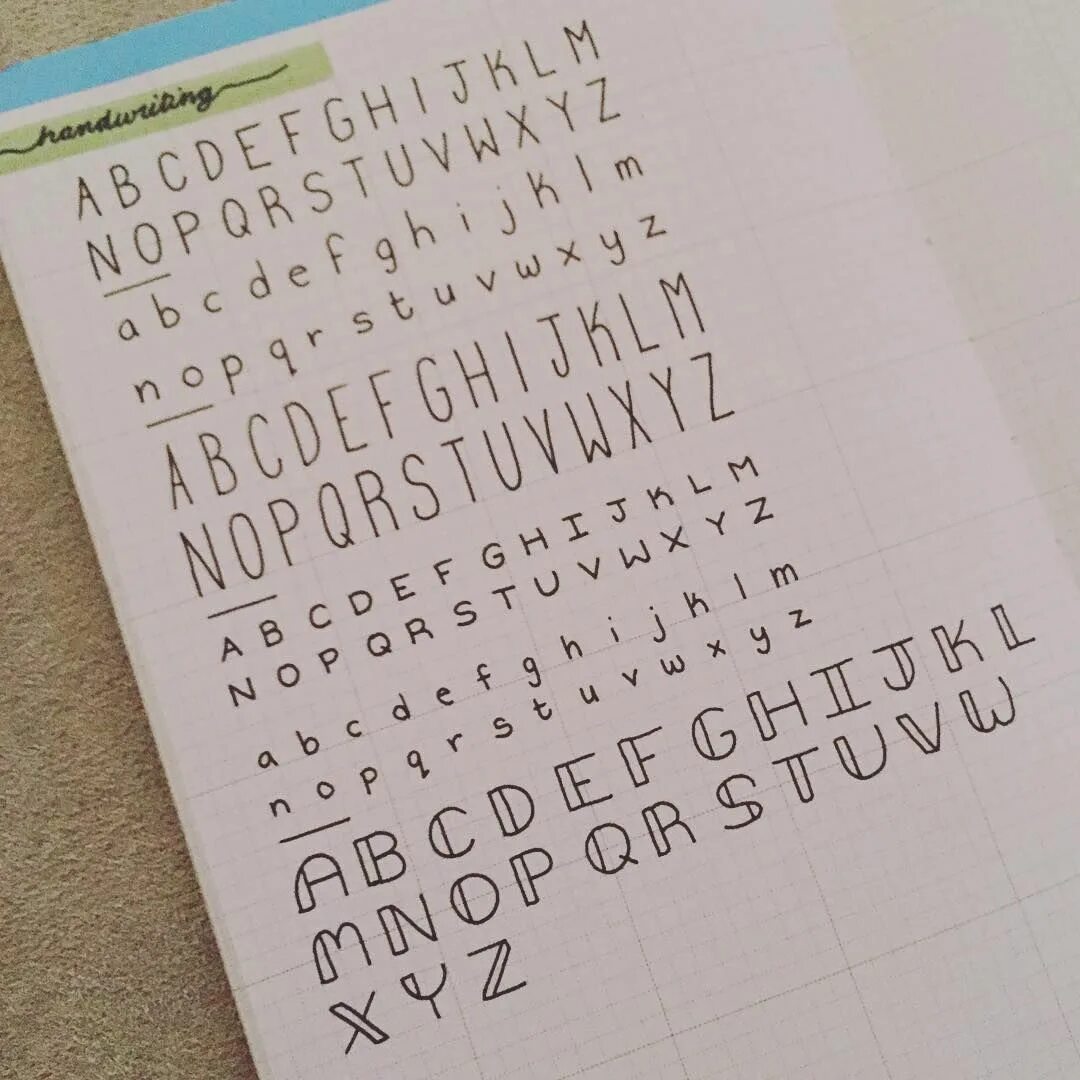 handwriting
A B C D E F G H I J K L M
N O P Q R S T U V W X Y Z
a b c d e f g h i j k l m
n o p q r s t u v w x y z
A B C D E F G H I J K L M
N O P Q R S T U V W X Y Z
A B C D E F G H I J K L M
N O P Q R S T U V W X Y Z
a b c d e f g h i j k l m
n o p q r s t u v w x y z
A B C D E F G H I J K L
M N O P Q R S T U V W
X Y Z